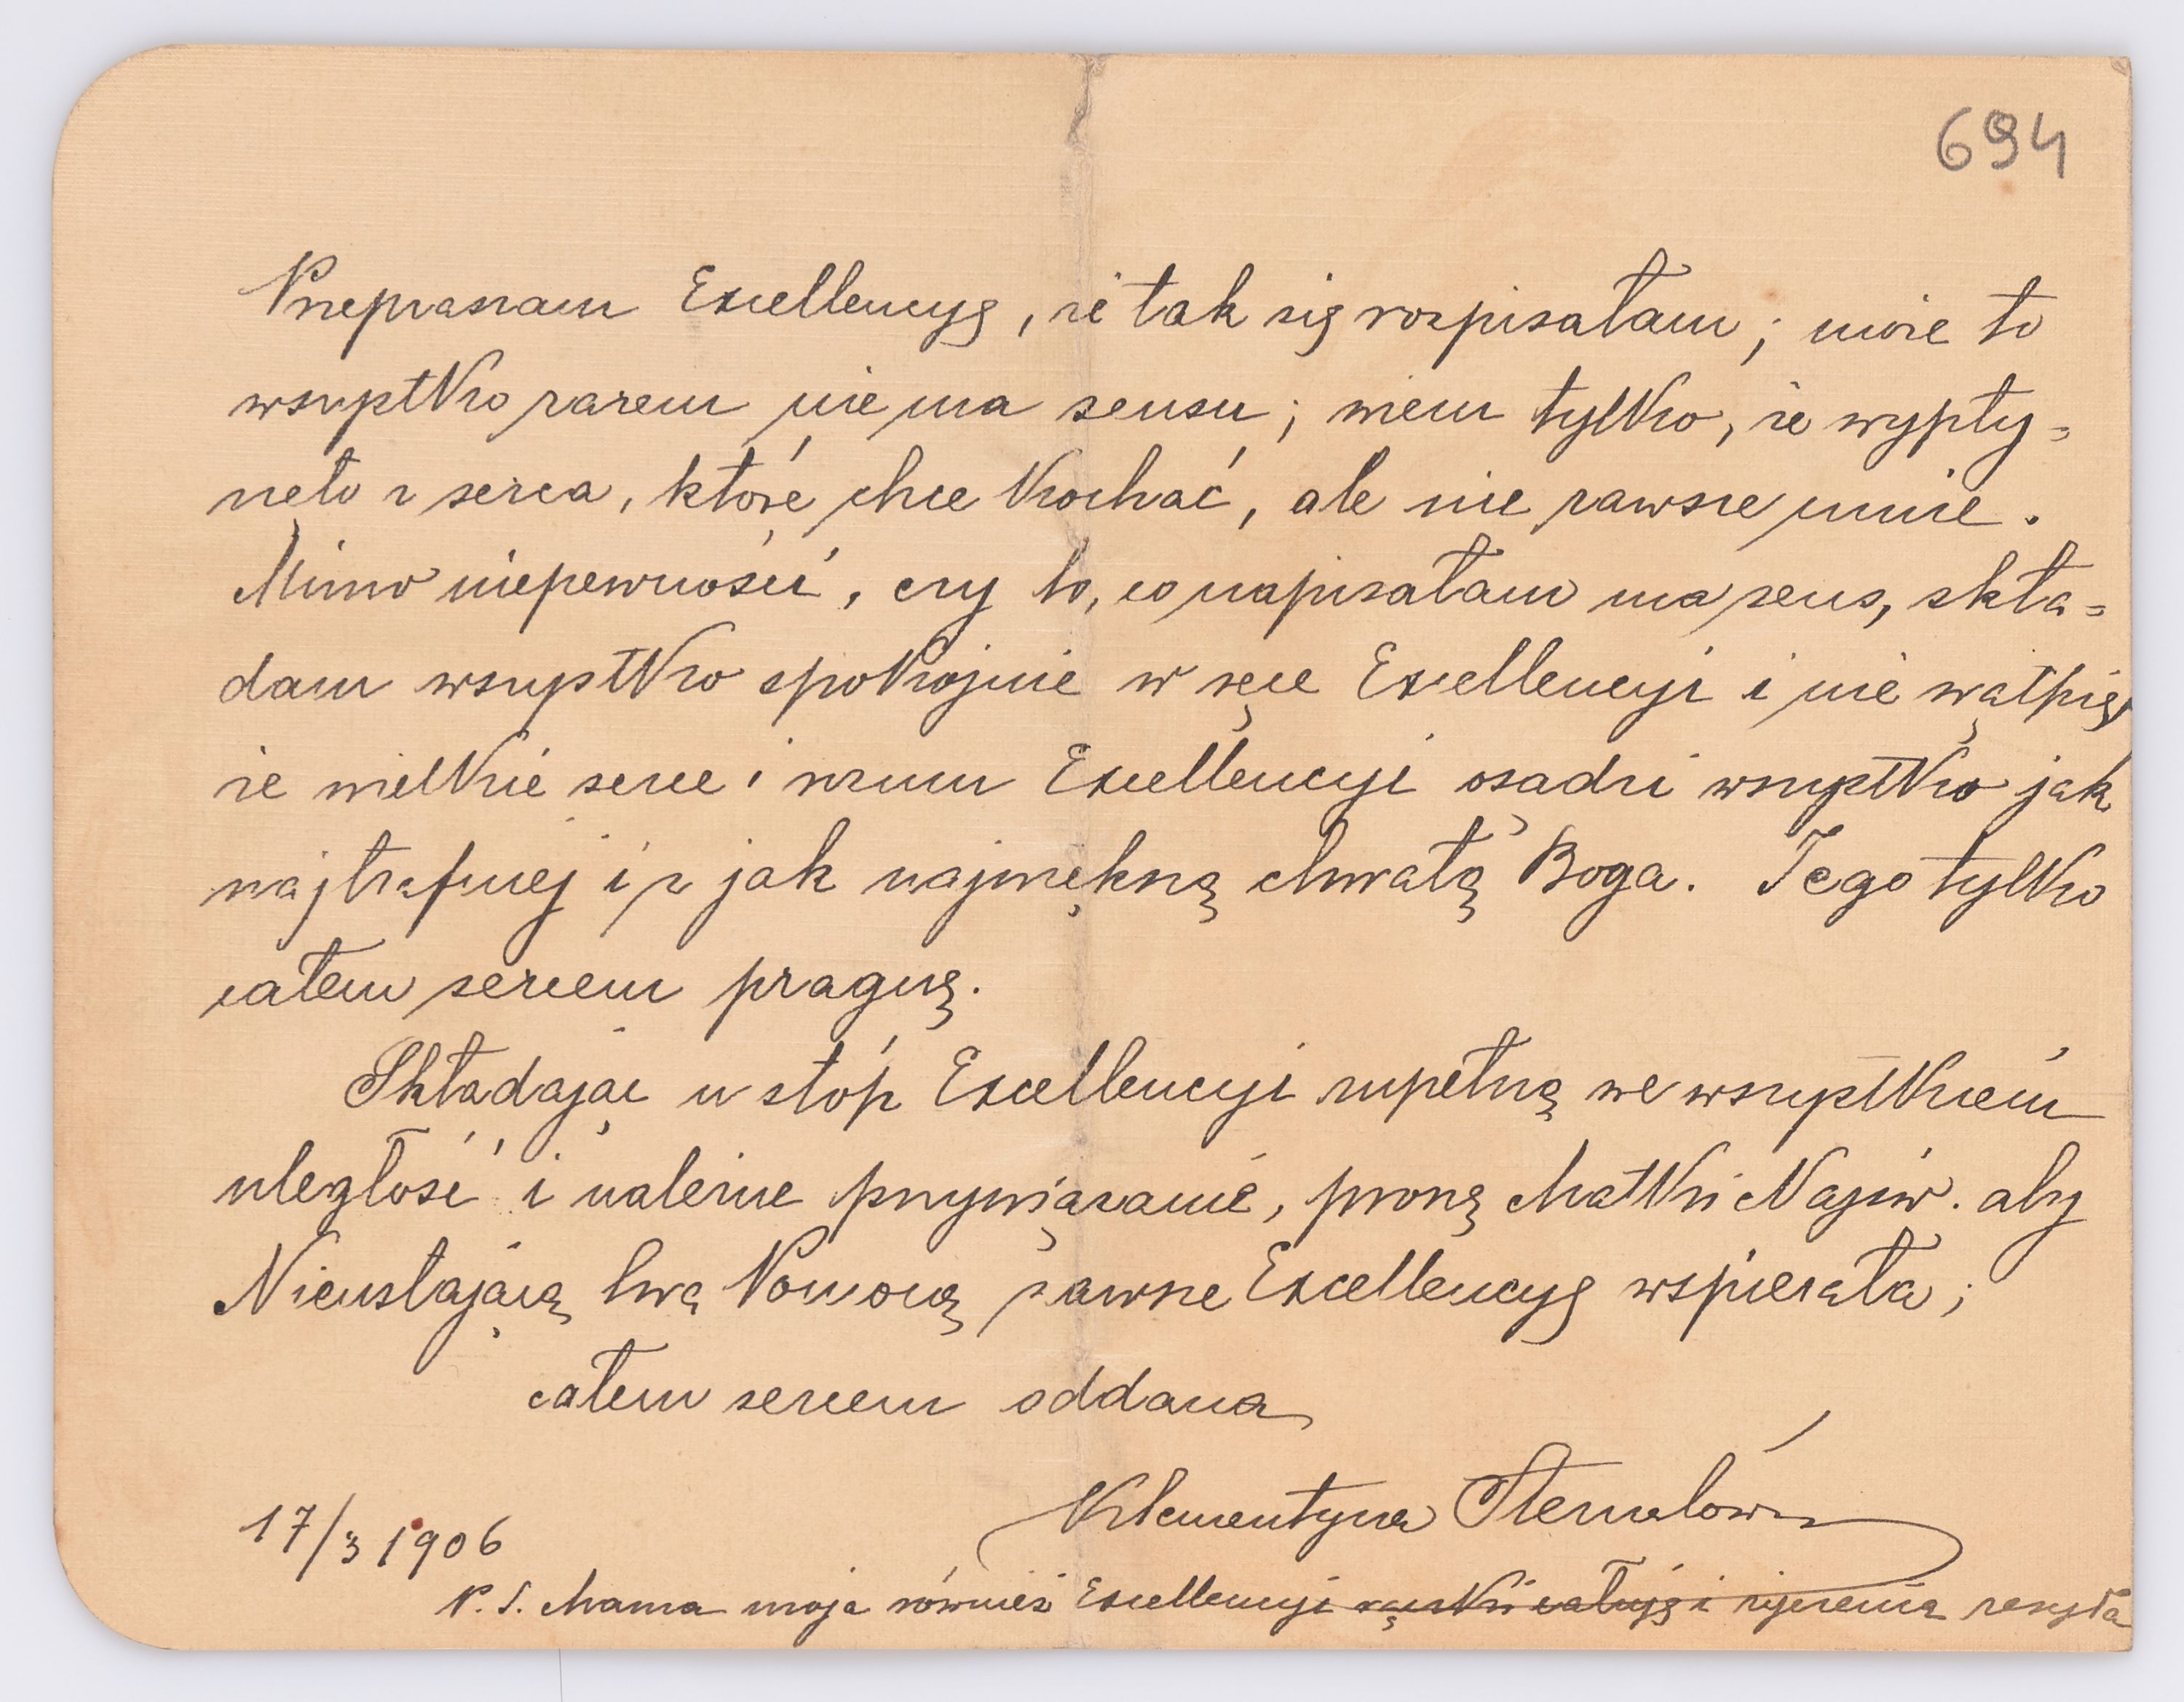 694
Przepraszam Excellencyę, że tak się rozpisałam; może to
wszystko razem nie ma sensu; wiem tylko, że wypły=
nęło z serca, które chce kochać, ale nie zawsze umie.
Mimo niepewności, czy to, co napisałam ma sens, skła=
dam wszystko spokojnie w ręce Excellencyi i nie wątpię,
że wielkie serce i rozum Excellencyi osądzi wszystko jak
najtrafniej i z jak największą chwałą Boga. Tego tylko
całem sercem pragnę.
Składając u stóp Excellencyi zupełną we wszystkiem
uległość i należne przywiązanie, proszę Matki Najśw. aby
Nieustającą Swą Pomocą zawsze Excellencyę wspierała;
całem sercem oddana
Klementyna
17/3 1906
P.S. Mama moja również Excellencyi rączki całuję i życzenia zasyła